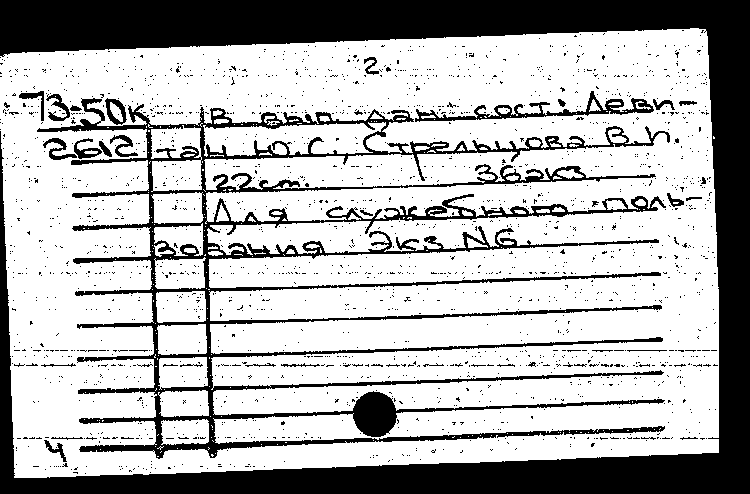 2.
73-50к В вып. дан. сост: Леви-
2612 тан Ю.С., Стрельцова В.П.
22 cm. 36 экз.
Для служебного поль-
зования Экз N6.
4